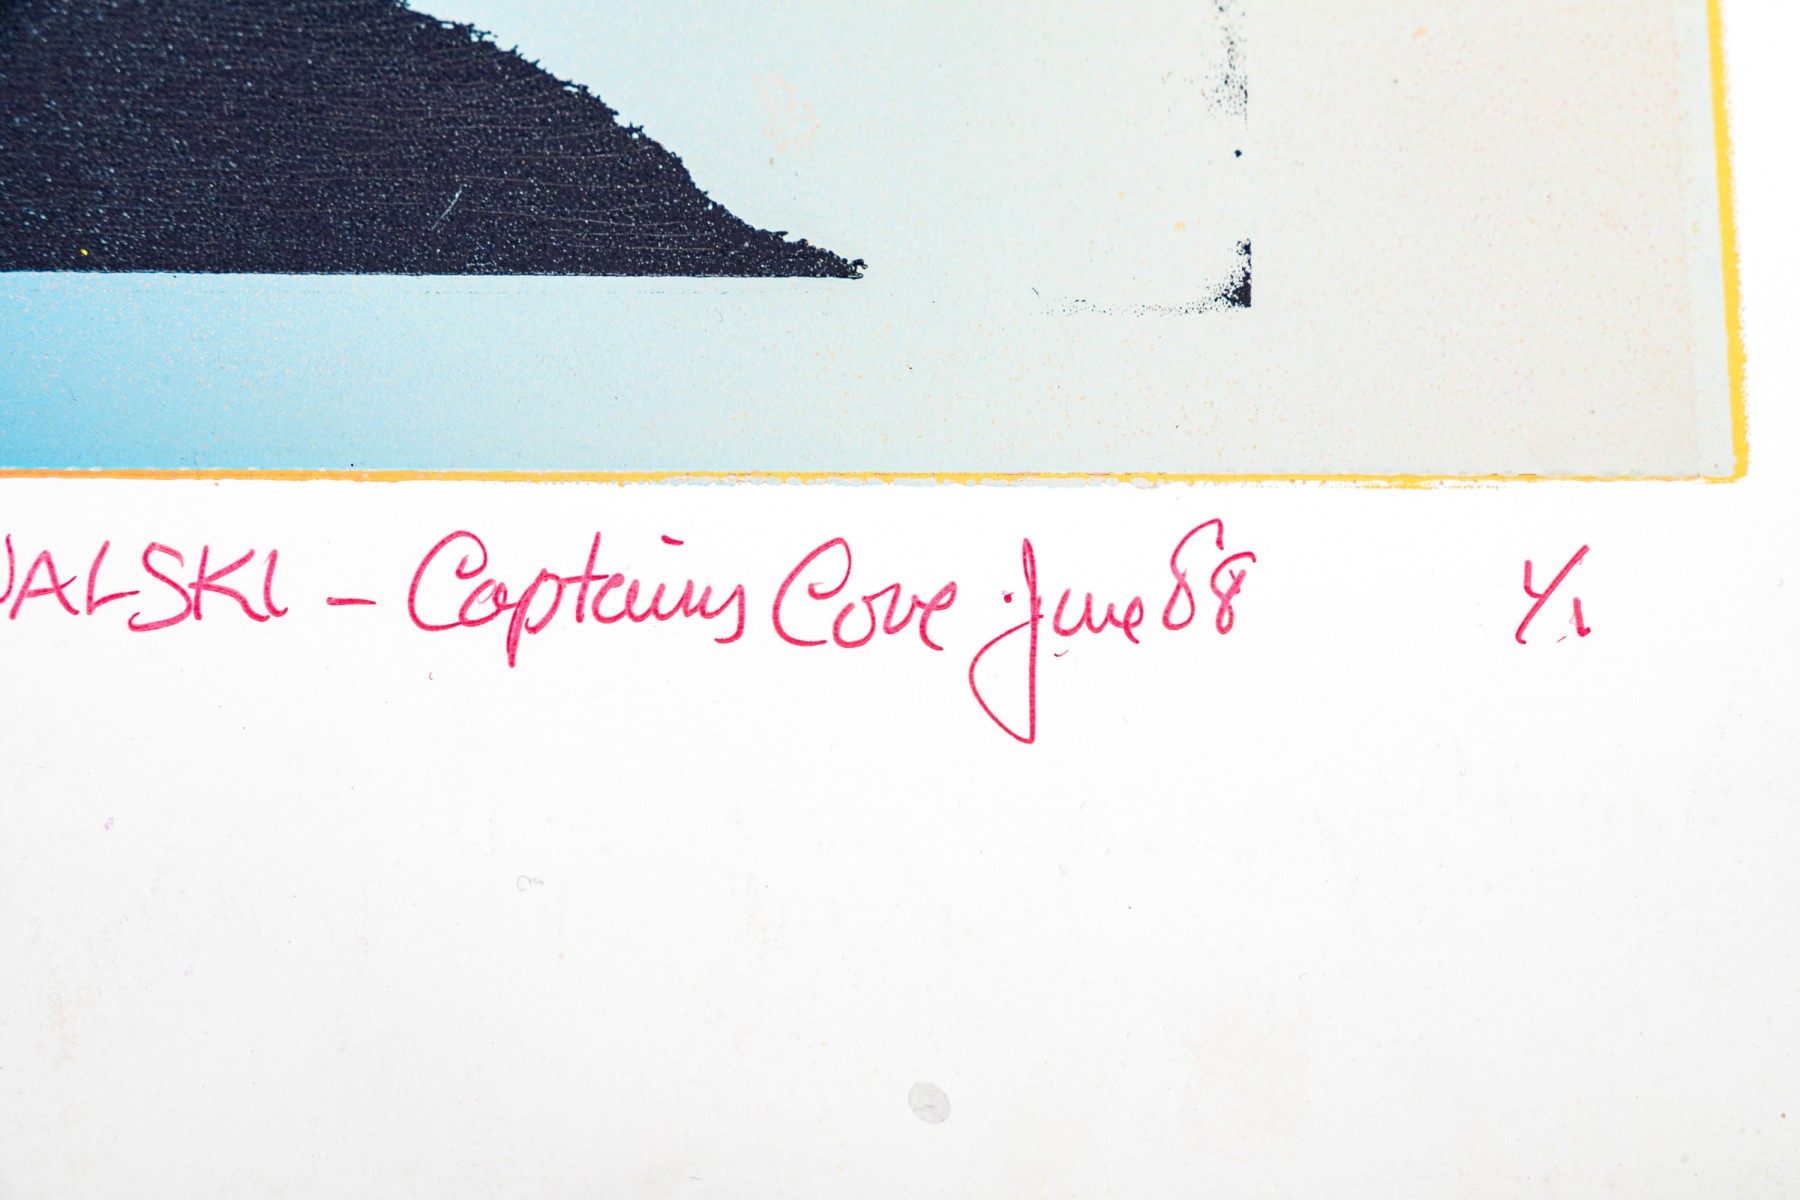 WALSKI – Captains Cove June 88 1/1